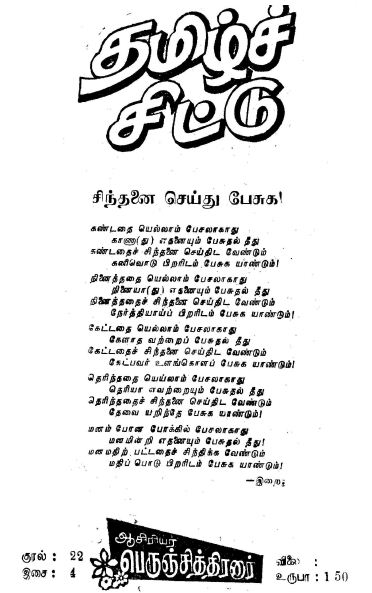 தமிழ்ச்
சிட்டு
சிந்தனை செய்து பேசுக!
கண்டதை யெல்லாம் பேசலாகாது
காணா(து) எதனையும் பேசுதல் தீது
கண்டதைச் சிந்தனை செய்திட வேண்டும்
கனிவொடு பிறரிடம் பேசுக யாண்டும்!
நினைத்ததை யெல்லாம் பேசலாகாது
நினையா(து) எதனையும் பேசுதல் தீது
நினைத்ததைச் சிந்தனை செய்திட வேண்டும்
நேர்த்தியாய்ப் பிறரிடம் பேசுக யாண்டும்!
கேட்டதை யெல்லாம் பேசலாகாது
கேளாத வற்றைப் பேசுதல் தீது
கேட்டதைச் சிந்தனை செய்திட வேண்டும்
கேட்பவர் உளங்கொளப் பேசுக யாண்டும்!
தெரிந்ததை யெல்லாம் பேசலாகாது
தெரியா எவற்றையும் பேசுதல் தீது
தெரிந்ததைச் சிந்தனை செய்திட வேண்டும்
தேவை யறிந்தே பேசுக யாண்டும்!
மனம் போன போக்கில் பேசலாகாது
மனமின்றி எதனையும் பேசுதல் தீது!
மனமதிற் பட்டதைச் சிந்திக்க வேண்டும்
மதிப் பொடு பிறரிடம் பேசுக யாண்டும்!
ஆசிரியர்
பெருஞ்சித்திரனார்
குரல் : 22
இசை : 4
விலை :
உருபா : 1 50